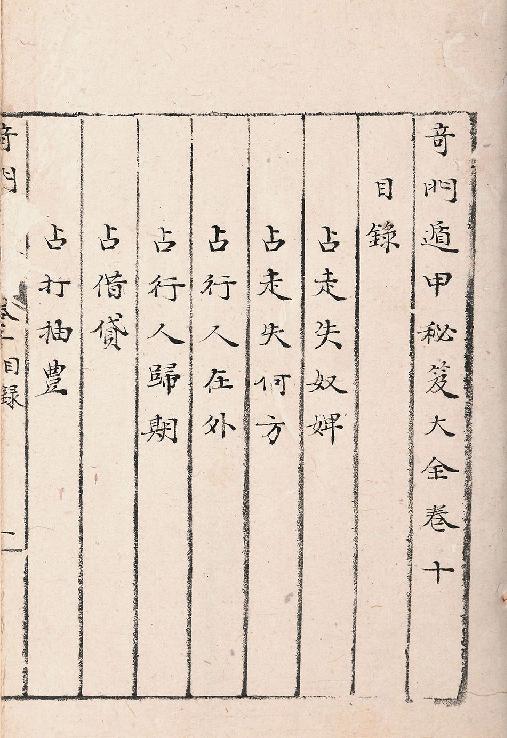 奇門遁甲秘笈大全卷十
目錄
占走失奴婢
占走失何方
占行人在外
占行人歸期
占借貸
占打抽豊
奇門
目録